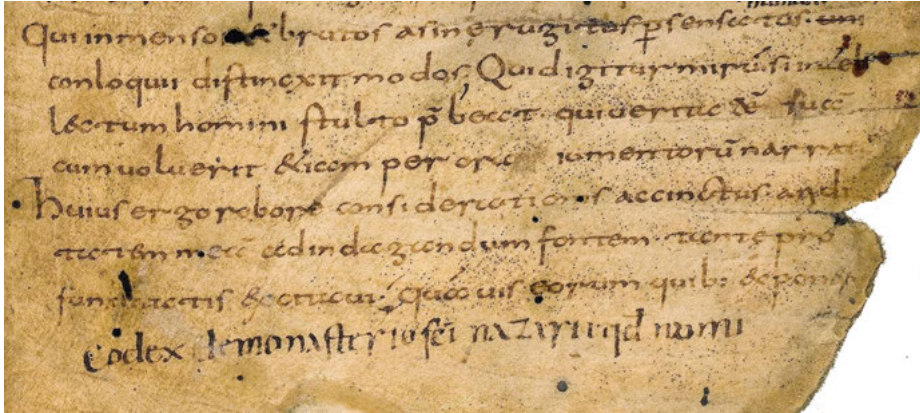 Qui inmensos & brutos asinę rugitus p sensatos
conloquii distinxit modos; Quid igitur mirū si intel
lectum homini stulto p̄beat qui ueritatē suā
cum uoluerit &iam per ora iumentorū narrat
Huius ergo robore considerationis accinctus aridi
tatem meā ad indagandum fontem tantę pro
funditatis excitaui; Quāuis eorum quib: exponere
Codex de monasterio sc̄i nazarii qd nomi